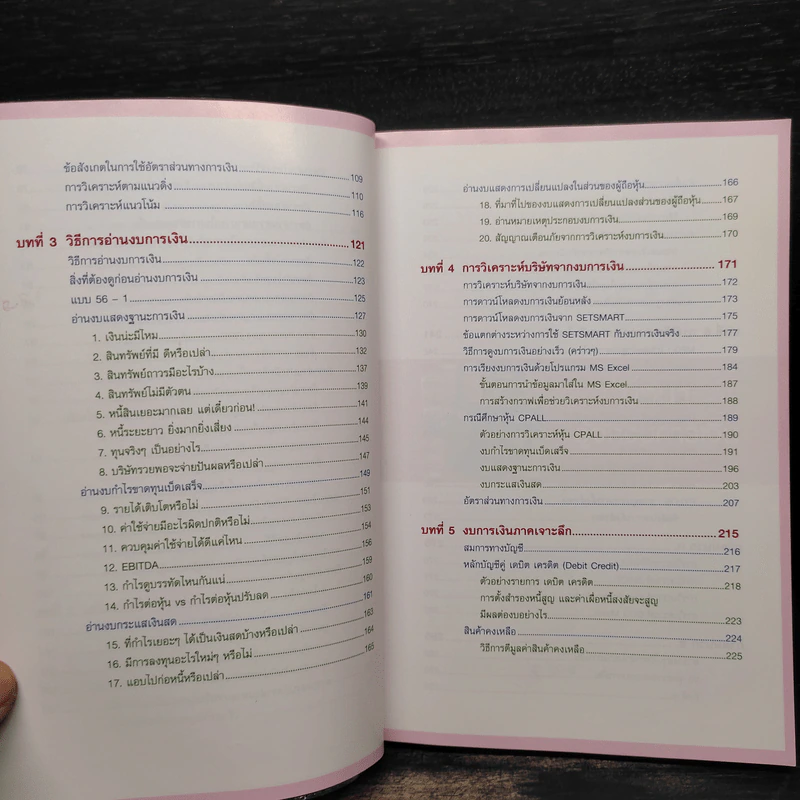 ข้อสังเกตในการใช้อัตราส่วนทางการเงิน 109
การวิเคราะห์ตามแนวดิ่ง 110
การวิเคราะห์แนวโน้ม 116
บทที่ 3 วิธีการอ่านงบการเงิน 121
วิธีการอ่านงบการเงิน 122
สิ่งที่ต้องดูก่อนอ่านงบการเงิน 123
แบบ 56 – 1 125
อ่านงบแสดงฐานะการเงิน 127
1. เงินน่ะมีไหม 130
2. สินทรัพย์ที่มี ดีหรือเปล่า 132
3. สินทรัพย์ถาวรมีอะไรบ้าง 137
4. สินทรัพย์ไม่มีตัวตน 139
5. หนี้สินเยอะมากเลย แต่เดี๋ยวก่อน! 141
6. หนี้ระยะยาว ยิ่งมากยิ่งเสี่ยง 144
7. ทุนจริงๆ เป็นอย่างไร 145
8. บริษัทรวยพอจะจ่ายปันผลหรือเปล่า 147
อ่านงบกำไรขาดทุนเบ็ดเสร็จ 149
9. รายได้เติบโตหรือไม่ 151
10. ค่าใช้จ่ายมีอะไรผิดปกติหรือไม่ 153
11. ควบคุมค่าใช้จ่ายได้ดีแค่ไหน 154
12. EBITDA 156
13. กำไรดูบรรทัดไหนกันแน่ 159
14. กำไรต่อหุ้น vs กำไรต่อหุ้นปรับลด 160
อ่านงบกระแสเงินสด 161
15. ที่กำไรเยอะๆ ได้เป็นเงินสดบ้างหรือเปล่า 163
16. มีการลงทุนอะไรใหม่ๆ หรือไม่ 164
17. แอบไปก่อหนี้หรือเปล่า 165
อ่านงบแสดงการเปลี่ยนแปลงในส่วนของผู้ถือหุ้น 166
18. ที่มาที่ไปของงบแสดงการเปลี่ยนแปลงส่วนของผู้ถือหุ้น 167
19. อ่านหมายเหตุประกอบงบการเงิน 169
20. สัญญาณเตือนภัยจากการวิเคราะห์งบการเงิน 170
บทที่ 4 การวิเคราะห์บริษัทจากงบการเงิน 171
การวิเคราะห์บริษัทจากงบการเงิน 172
การดาวน์โหลดงบการเงินย้อนหลัง 173
การดาวน์โหลดงบการเงินจาก SETSMART 175
ข้อแตกต่างระหว่างการใช้ SETSMART กับงบการเงินจริง 177
วิธีการดูงบการเงินอย่างเร็ว (คร่าวๆ) 179
การเรียงงบการเงินด้วยโปรแกรม MS Excel 184
ขั้นตอนการนำข้อมูลมาใส่ใน MS Excel 187
การสร้างกราฟเพื่อช่วยวิเคราะห์งบการเงิน 188
กรณีศึกษาหุ้น CPALL 189
ตัวอย่างการวิเคราะห์หุ้น CPALL 190
งบกำไรขาดทุนเบ็ดเสร็จ 191
งบแสดงฐานะการเงิน 196
งบกระแสเงินสด 203
อัตราส่วนทางการเงิน 207
บทที่ 5 งบการเงินภาคเจาะลึก 215
สมการทางบัญชี 216
หลักบัญชีคู่ เดบิต เครดิต (Debit Credit) 217
ตัวอย่างรายการ เดบิต เครดิต 218
การตั้งสำรองหนี้สูญ และค่าเผื่อหนี้สงสัยจะสูญ
มีผลต่องบอย่างไร 223
สินค้าคงเหลือ 224
วิธีการตีมูลค่าสินค้าคงเหลือ 225